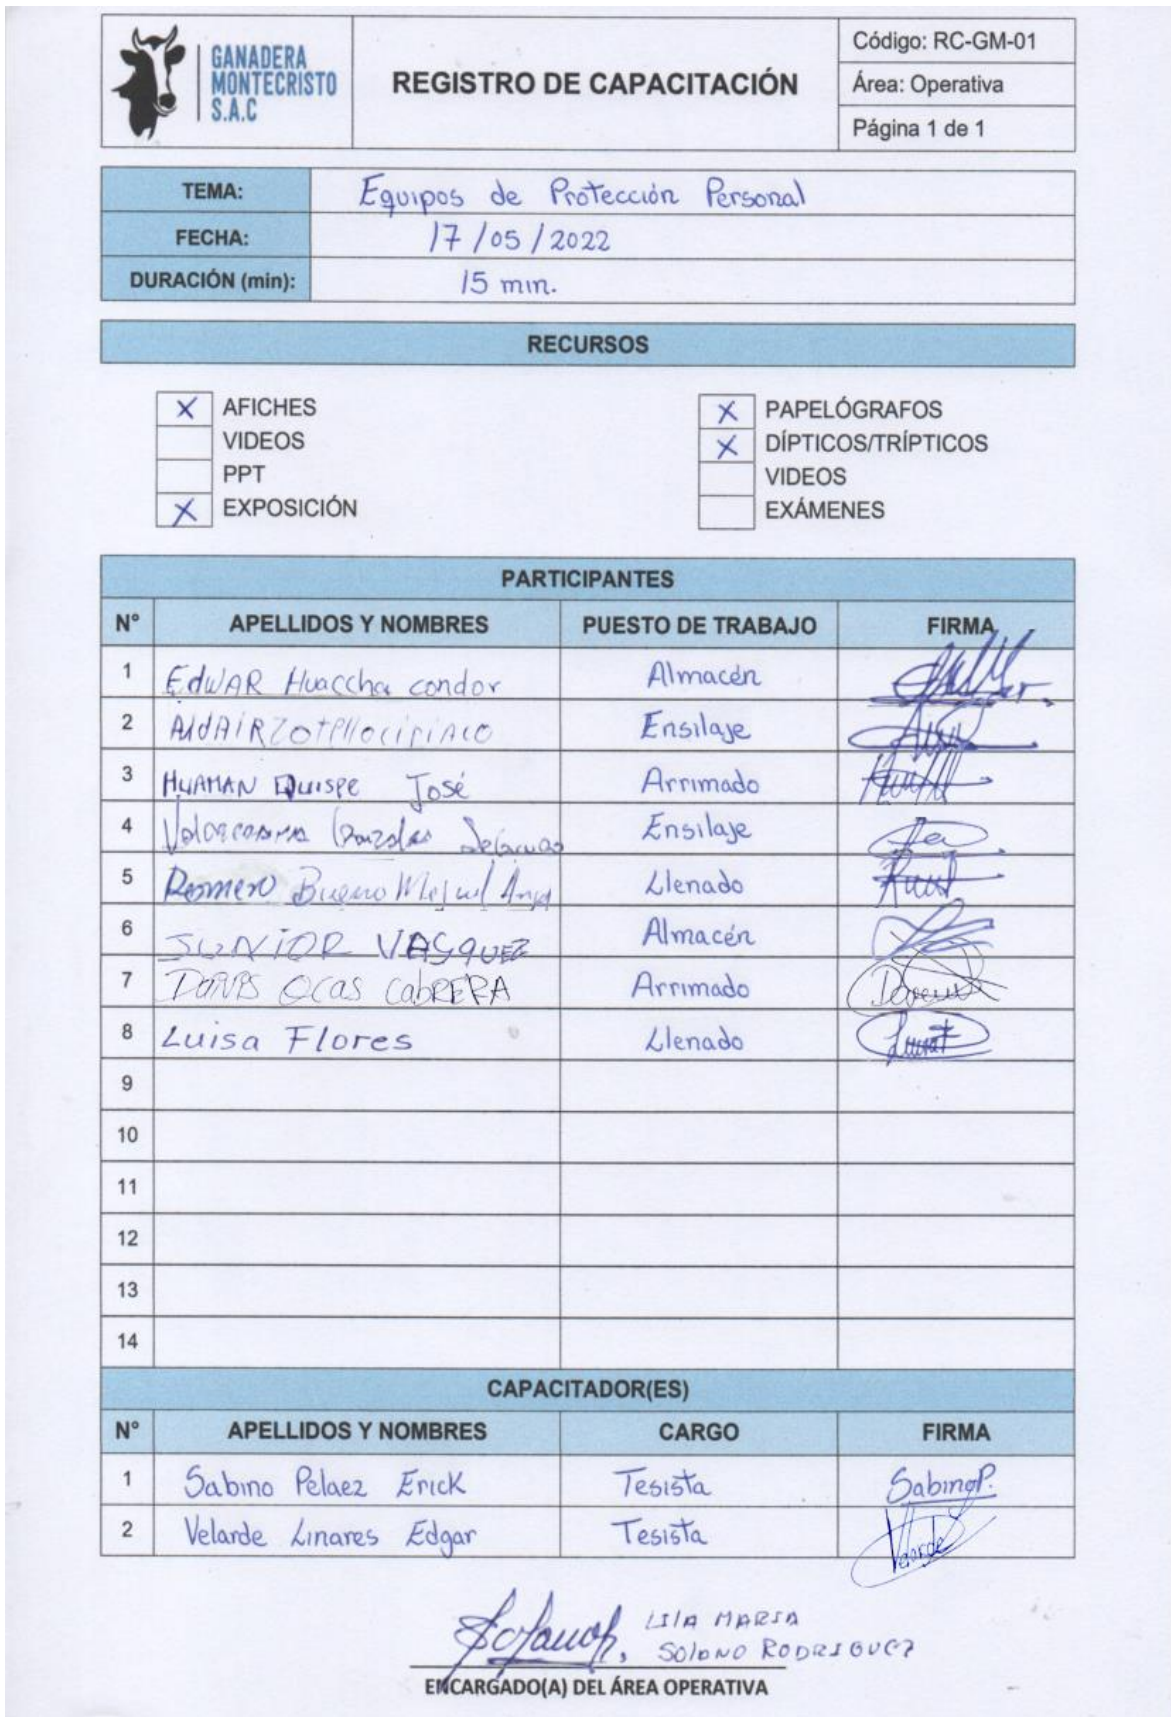 GANADERA
MONTECRISTO
S.A.C
REGISTRO DE CAPACITACIÓN
Código: RC-GM-01
Área: Operativa
Página 1 de 1
TEMA: Equipos de Protección Personal
FECHA: 17/05/2022
DURACIÓN (min): 15 min.
RECURSOS
X AFICHES
VIDEOS
PPT
X EXPOSICIÓN
X PAPELÓGRAFOS
X DÍPTICOS/TRÍPTICOS
VIDEOS
EXÁMENES
PARTICIPANTES
N° APELLIDOS Y NOMBRES PUESTO DE TRABAJO FIRMA
1 EdWAR Huaccha condor Almacén
2 AldAIR Ensilaje
3 HUAMAN Quispe José Arrimado
4 Ensilaje
5 Romero Bueno Miguel Angel Llenado
6 JUNIOR VASQUEZ Almacén
7 Ocas CabRERA Arrimado
8 Luisa Flores Llenado
9
10
11
12
13
14
CAPACITADOR(ES)
N° APELLIDOS Y NOMBRES CARGO FIRMA
1 Sabino Pelaez Erick Tesista SabinoP.
2 Velarde Linares Edgar Tesista Velarde
LILA MARIA
SOLANO RODRIGUEZ
ENCARGADO(A) DEL ÁREA OPERATIVA